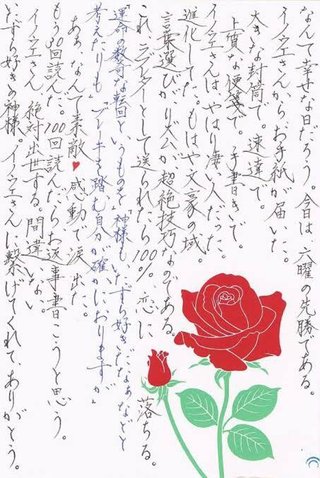 なんて幸せな日だろう。今日は六曜の先勝である。
イノウエさんから、お手紙が届いた。
大きな封筒で。速達で。
上質な便箋で。手書きで。
イノウエさんはやはり凄い人だった。
進化してた。もはや文豪の域。
言葉選びがり火公が超絶技巧なのである。
これ、ラブレターとして送られたら100%恋に落ちる。
「運命の発可な転回というものを神様もいたずら好きだなぁなどと
考えたりも」「ドキを踏む自分が確かにおりますが」
ああ、なんて素敵♥感動で涙出た。
もう30回読んだ。100回読んだらお返事書こうと思う。
イノウエさん、絶対出世する。間違いない。
いたずら好きの神様。イノウエさんに繋げてくれて、ありがとう。